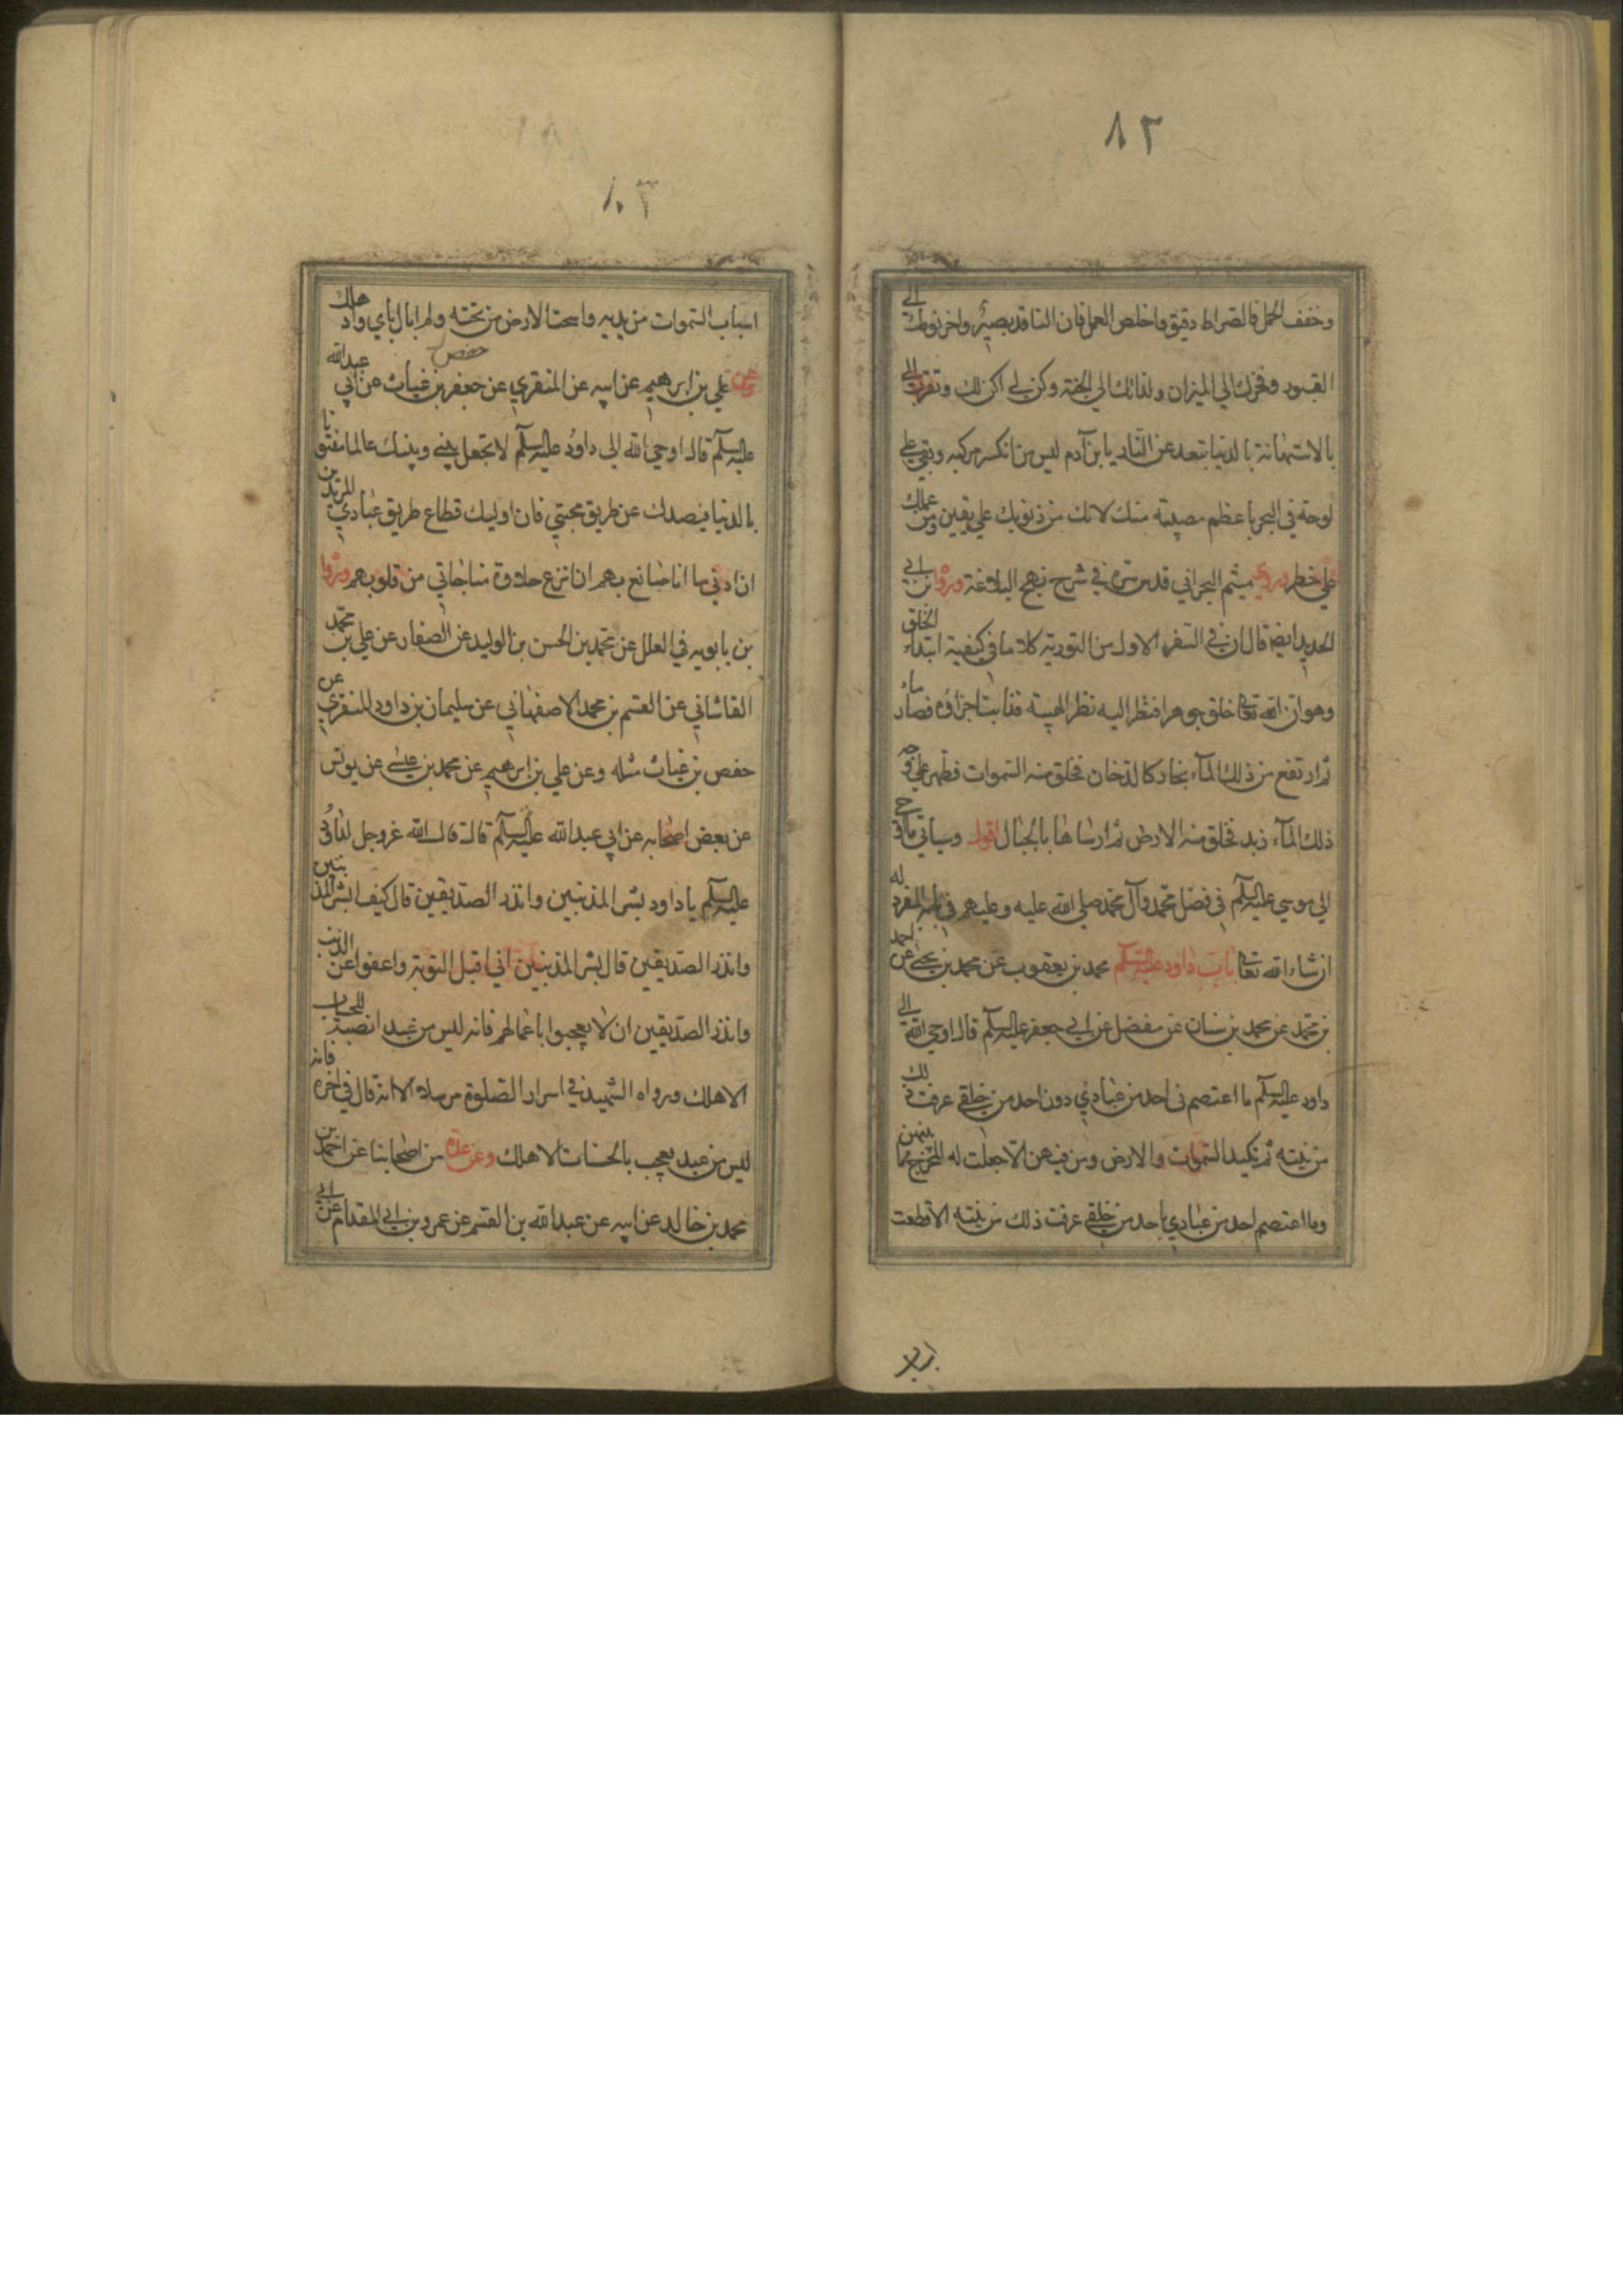 ٨٢
وخفف الحمل فالصراط دقيق واخلص العمل فان الناقد بصير واخر نومك الى
القبور وفخرك الي الميزان ولذاتك الي الجنة وكن لي اكن لك وتقرب الي
بالاستهانة بالدنيا تبعد عن النار يا بن آدم ليس من انكسر مركبه وبقي علي
لوحة في البحر باعظم مصيبة منك لانك من ذنوبك علي يقين ومن عملك
علي خطر وروي ميثم البحراني قدس سره في شرح نهج البلاغة وروا بن ابي
الحديد ايضا قال ان في السفر الاول من التورية كلاما في كيفية ابتداء الخلق
وهو ان الله تعالى خلق جوهرا فنظر اليه نظر الهيبة فذابت اجزاؤه فصار ماء
ثم ارتفع من ذلك المآء بخار كالدخان فخلق منه السموات فظهر علي وجه
ذلك المآء زبد فخلق منه الارض ثم ارساها بالجبال اقول وسياتي ما اوحي
الي موسي عليه السلم في فضل محمد وآل محمد صلي الله عليه وعليهم في بابه المفرد له
ان شاء الله تعالى باب داود عليه السلم محمد بن يعقوب عن محمد بن يحيى عن احمد
بن محمد عن محمد بن سنان عن مفضل عن ابي جعفر عليه السلم قال اوحي الله الى
داود عليه السلم ما اعتصم بي احد من عبادي دون احد من خلقي عرفت ذلك
من نيته ثم تكيد السموات والارض ومن فيهن الا جعلت له المخرج مما بينهن
وما اعتصم احد من عبادي باحد من خلقي عرفت ذلك من نيته الا قطعت
١٠٣
اسباب السموات من يديه واسحت الارض من تحته ولم ابال باي واد هلك
حفص
وعن علي بن ابرهيم عن ابيه عن المنقري عن جعفر بن غياث عن ابي عبد الله
عليه السلم قال اوحي الله الي داود عليه السلم لا تجعل بيني وبينك عالما مفتونا
بالدنيا فيصدك عن طريق محبتي فان اوليك قطاع طريق عبادي المريدين
ان ادني ما انا صانع بهم ان انزع حلاوة مناجاتي من قلوبهم وروا
بن بابويه في العلل عن محمد بن الحسن بن الوليد عن الصفار عن علي بن محمد
القاشاني عن القسم بن محمد الاصفهاني عن سليمان بن داود المنقري عن
حفص بن غياث مثله وعن علي بن ابرهيم عن محمد بن عيسى عن يونس
عن بعض اصحابه عن ابي عبد الله عليه السلم قال قال الله عز وجل لداود
عليه السلم يا داود بشر المذنبين وانذر الصديقين قال كيف ابشر المذنبين
وانذر الصديقين قال بشر المذنبين اني اقبل التوبة واعفوا عن الذنب
وانذر الصديقين ان لا يعجبوا باعمالهم فانه ليس من عبد انصبه للحساب
الا هلك ورواه الشهيد في اسرار الصلوة مرسلا الا انه قال في اخره فانه
ليس من عبد يعجب بالحسنات الا هلك وعن عدة من اصحابنا عن احمد بن
محمد بن خالد عن ابيه عن عبد الله بن القسم عن عمرو بن ابي المقدام عن ابي